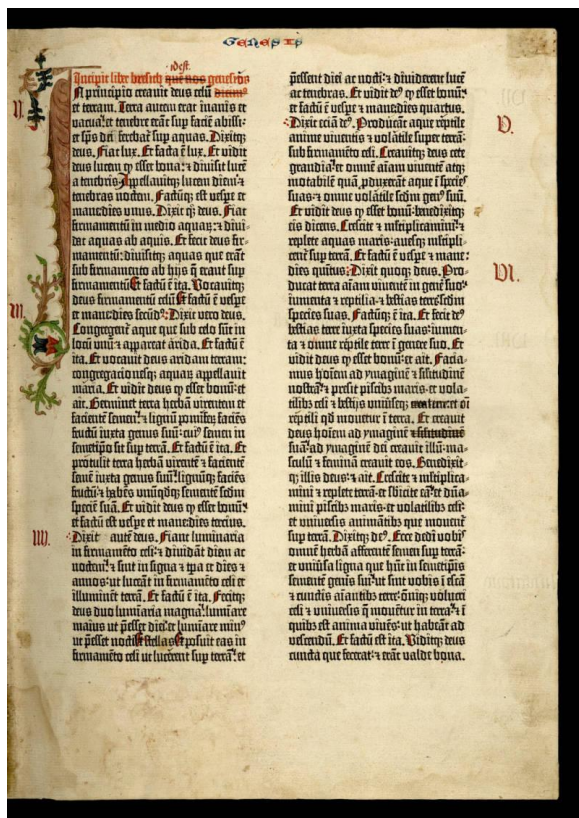 GENESIS
idest.
Incipit liber bresith quē nos genesim
In principio creavit deus celū dicimꝰ
et terram. Terra autem erat inanis et
vacua: et tenebre erāt sup faciē abissi:
et spūs dñi ferebat̄ sup aquas. Dixitqꝫ
deus. Fiat lux. Et facta ē lux. Et vidit
deus lucem ꝙ esset bona: ⁊ divisit lucē
a tenebris. Appellavitqꝫ lucem diem ⁊
tenebras noctem. Factūqꝫ est vespe et
mane dies unus. Dixit qꝫ deus. Fiat
firmamentū in medio aquaꝝ: ⁊ divi-
dat aquas ab aquis. Et fecit deus fir-
mamentū: divisitqꝫ aquas que erāt
sub firmamento ab hijs q̄ erant sup
firmamentū. Et factū ē ita. Vocavitqꝫ
deus firmamentū celū. Et factū ē vespe
et mane dies secūdꝰ. Dixit vero deus.
Congregent̄ aque que sub celo sūt in
locū unū ⁊ appareat arida. Et factū ē
ita. Et vocavit deus aridam terram:
congregacionesqꝫ aquaꝝ appellavit
maria. Et vidit deus ꝙ esset bonū: et
ait. Germinet terra herbā virentem et
facientē semen: ⁊ lignū pomiferū faciēs
fructū iuxta genus suū: cuiꝰ semen in
semetipo sit sup terrā. Et factū ē ita. Et
protulit terra herbā virentē ⁊ facientē
semē iuxta genus suū: lignūqꝫ faciēs
fructū ⁊ habēs unūqdqꝫ sementē scdm
speciē suā. Et vidit deus ꝙ esset bonū:
et factū est vespe et mane dies tercius.
IIII.
Dixit autē deus. Fiant luminaria
in firmamēto celi: ⁊ dividāt diem ac
noctem: ⁊ sint in signa ⁊ tpa et dies ⁊
annos: ut luceāt in firmamēto celi et
illuminēt terrā. Et factū ē ita. Fecitqꝫ
deus duo luminaria magna: luminare
maius ut pesset diei: et luminare minꝰ
ut pesset nocti: ⁊ stellas. Et posuit eas in
firmamēto celi ut lucerent sup terrā: et
pessent diei ac nocti: ⁊ dividerent lucē
ac tenebras. Et vidit deꝰ ꝙ esset bonū:
et factū ē vespe et mane dies quartus.
V.
Dixit eciā deꝰ. Producāt aque reptile
anime viventis ⁊ volatile super terrā:
sub firmamēto celi. Creavitqꝫ deus cete
grandia: et omnē aīam viventē atqꝫ
motabilē quā pduxerāt aque ī species
suas: ⁊ omne volatile scdm genꝰ suū.
Et vidit deus ꝙ esset bonū: benedixitqꝫ
eis dicens. Crescite ⁊ mltiplicamini: ⁊
replete aquas maris: avesqꝫ mltipli-
cent̄ sup terrā. Et factū ē vespe ⁊ mane
VI.
dies quītus. Dixit quoqꝫ deus. Pro-
ducat terra aīam viventē in genē suo:
iumenta ⁊ reptilia: ⁊ bestias terre scdm
species suas. Factūqꝫ ē ita. Et fecit deꝰ
bestias terre iuxta species suas: iumen-
ta ⁊ omne reptile terre ī genere suo. Et
vidit deus ꝙ esset bonū: et ait. Facia-
mus hoīem ad ymaginē ⁊ silitudinē
nostrā: ⁊ presit piscibꝫ maris: et vola-
tilibꝫ celi ⁊ bestijs universeqꝫ creature: et oī
reptili qd movetur ī terra. Et creavit
deus hoīem ad ymaginē ⁊ silitudinē
suā: ad ymaginē dei creavit illū: ma-
sculū ⁊ feminā creavit eos. Benedixit-
qꝫ illis deus: ⁊ ait. Crescite ⁊ mltiplica-
mini ⁊ replete terrā: et sbicite eā: et dūa-
mini piscibꝫ maris: et volatilibꝫ celi:
et universis animātibꝫ que movent̄
sup terrā. Dixitqꝫ deꝰ. Ecce dedi vobis
omnē herbā afferentē semen sup terrā:
et universa ligna que hūt in semetipis
sementē genis sui: ut sint vobis ī escā
⁊ cunctis aīantibꝫ terre: ōniqꝫ volucri
celi ⁊ universis q̄ movētur in terra: ⁊ ī
quibꝫ est anima vivēs: ut habeāt ad
vescendū. Et factū est ita. Viditqꝫ deus
cuncta que fecerat: ⁊ erāt valde bona.